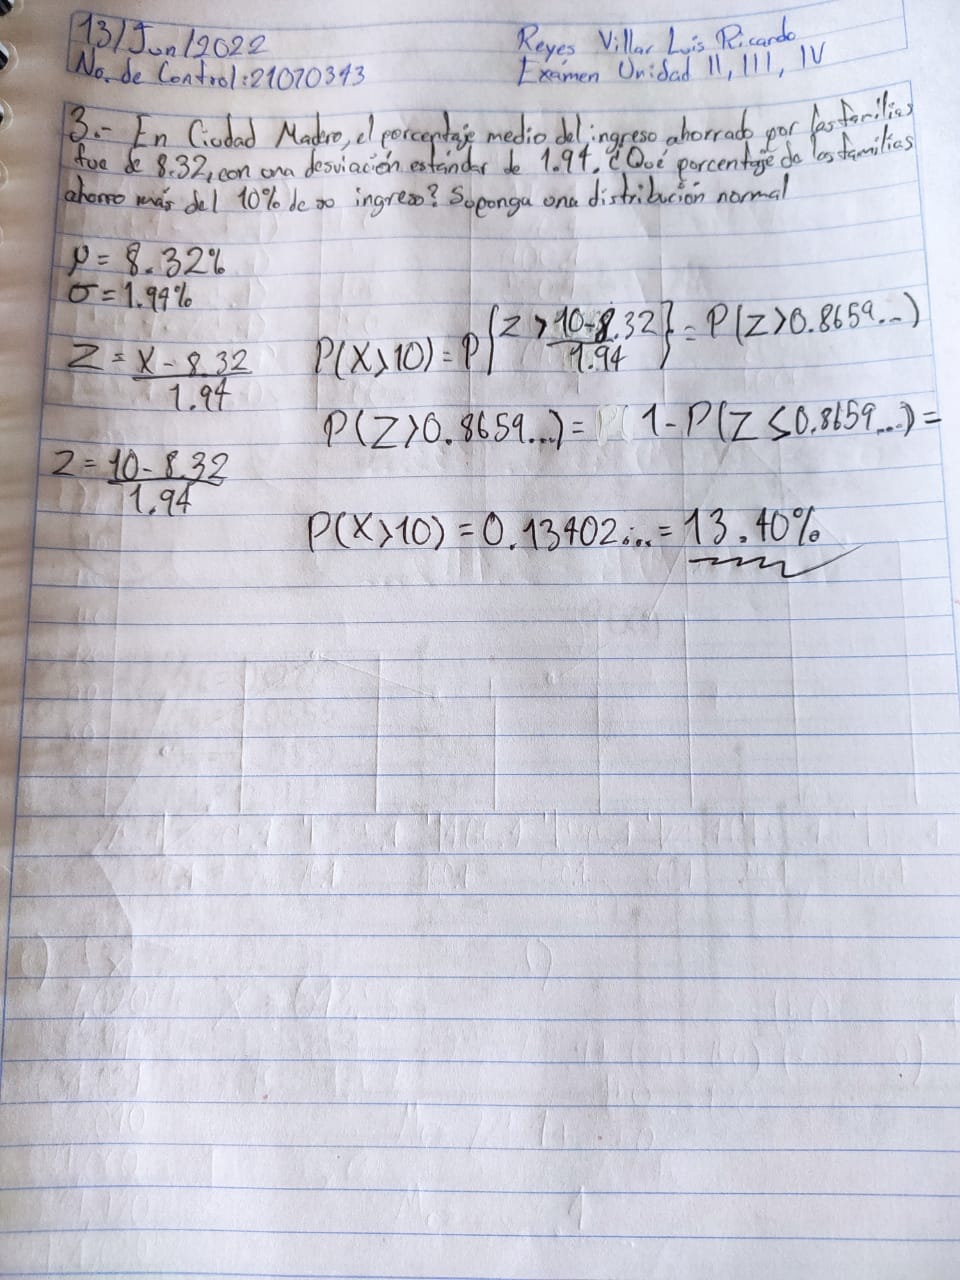 13/Jun/2022
Reyes Villar Luis Ricardo
No. de Control: 21070343
Exámen Unidad II, III, IV
3.- En Ciudad Madero, el porcentaje medio del ingreso ahorrado por las familias
fue de 8.32, con una desviación estándar de 1.94. ¿Qué porcentaje de las familias
ahorro más del 10% de su ingreso? Suponga una distribución normal
μ = 8.32%
σ = 1.94%
Z = X - 8.32 / 1.94
P(X>10) = P{Z > 10-8.32 / 1.94} = P(Z>0.8659...)
P(Z>0.8659...) = 1 - P(Z≤0.8659...) =
Z = 10 - 8.32 / 1.94
P(X>10) = 0.13402... = 13.40%